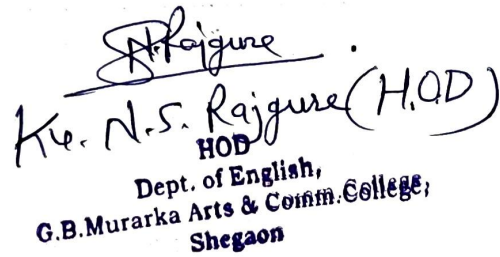 N. Rajgure
Ku. N.S. Rajgure (H.O.D)
HOD
Dept. of English,
G.B.Murarka Arts & Comm. College,
Shegaon